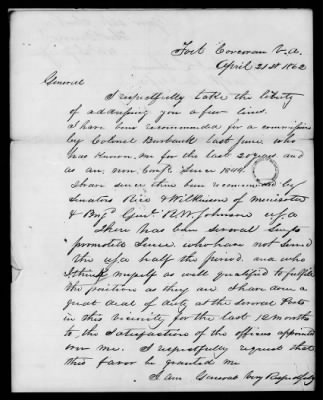 Fort Corcoran V.A.
April 21st 1862
General
I respectfully take the liberty
of addressing you a few lines.
I have been recommended for a commission
by Colonel Burbank last June, who
has known me for the last 20 years and
as an non. Comd. since 1844.
I have since then been recommended by
Senators Rice & Wilkinson of Menisoter
& Brig. Genl. R. W. Johnson U.S.A
There has been several Sergts
promoted since who have not served
the U.S.A half the period. and who
I think myself as well qualified to fulfill
the position as they are I have done a
great deal of duty at the several Posts
in this vicinity for the last 12 months
to, the satisfaction of the officers appointed
over me. I respectfully request that
this favor be granted me
I am General Very Respectfully